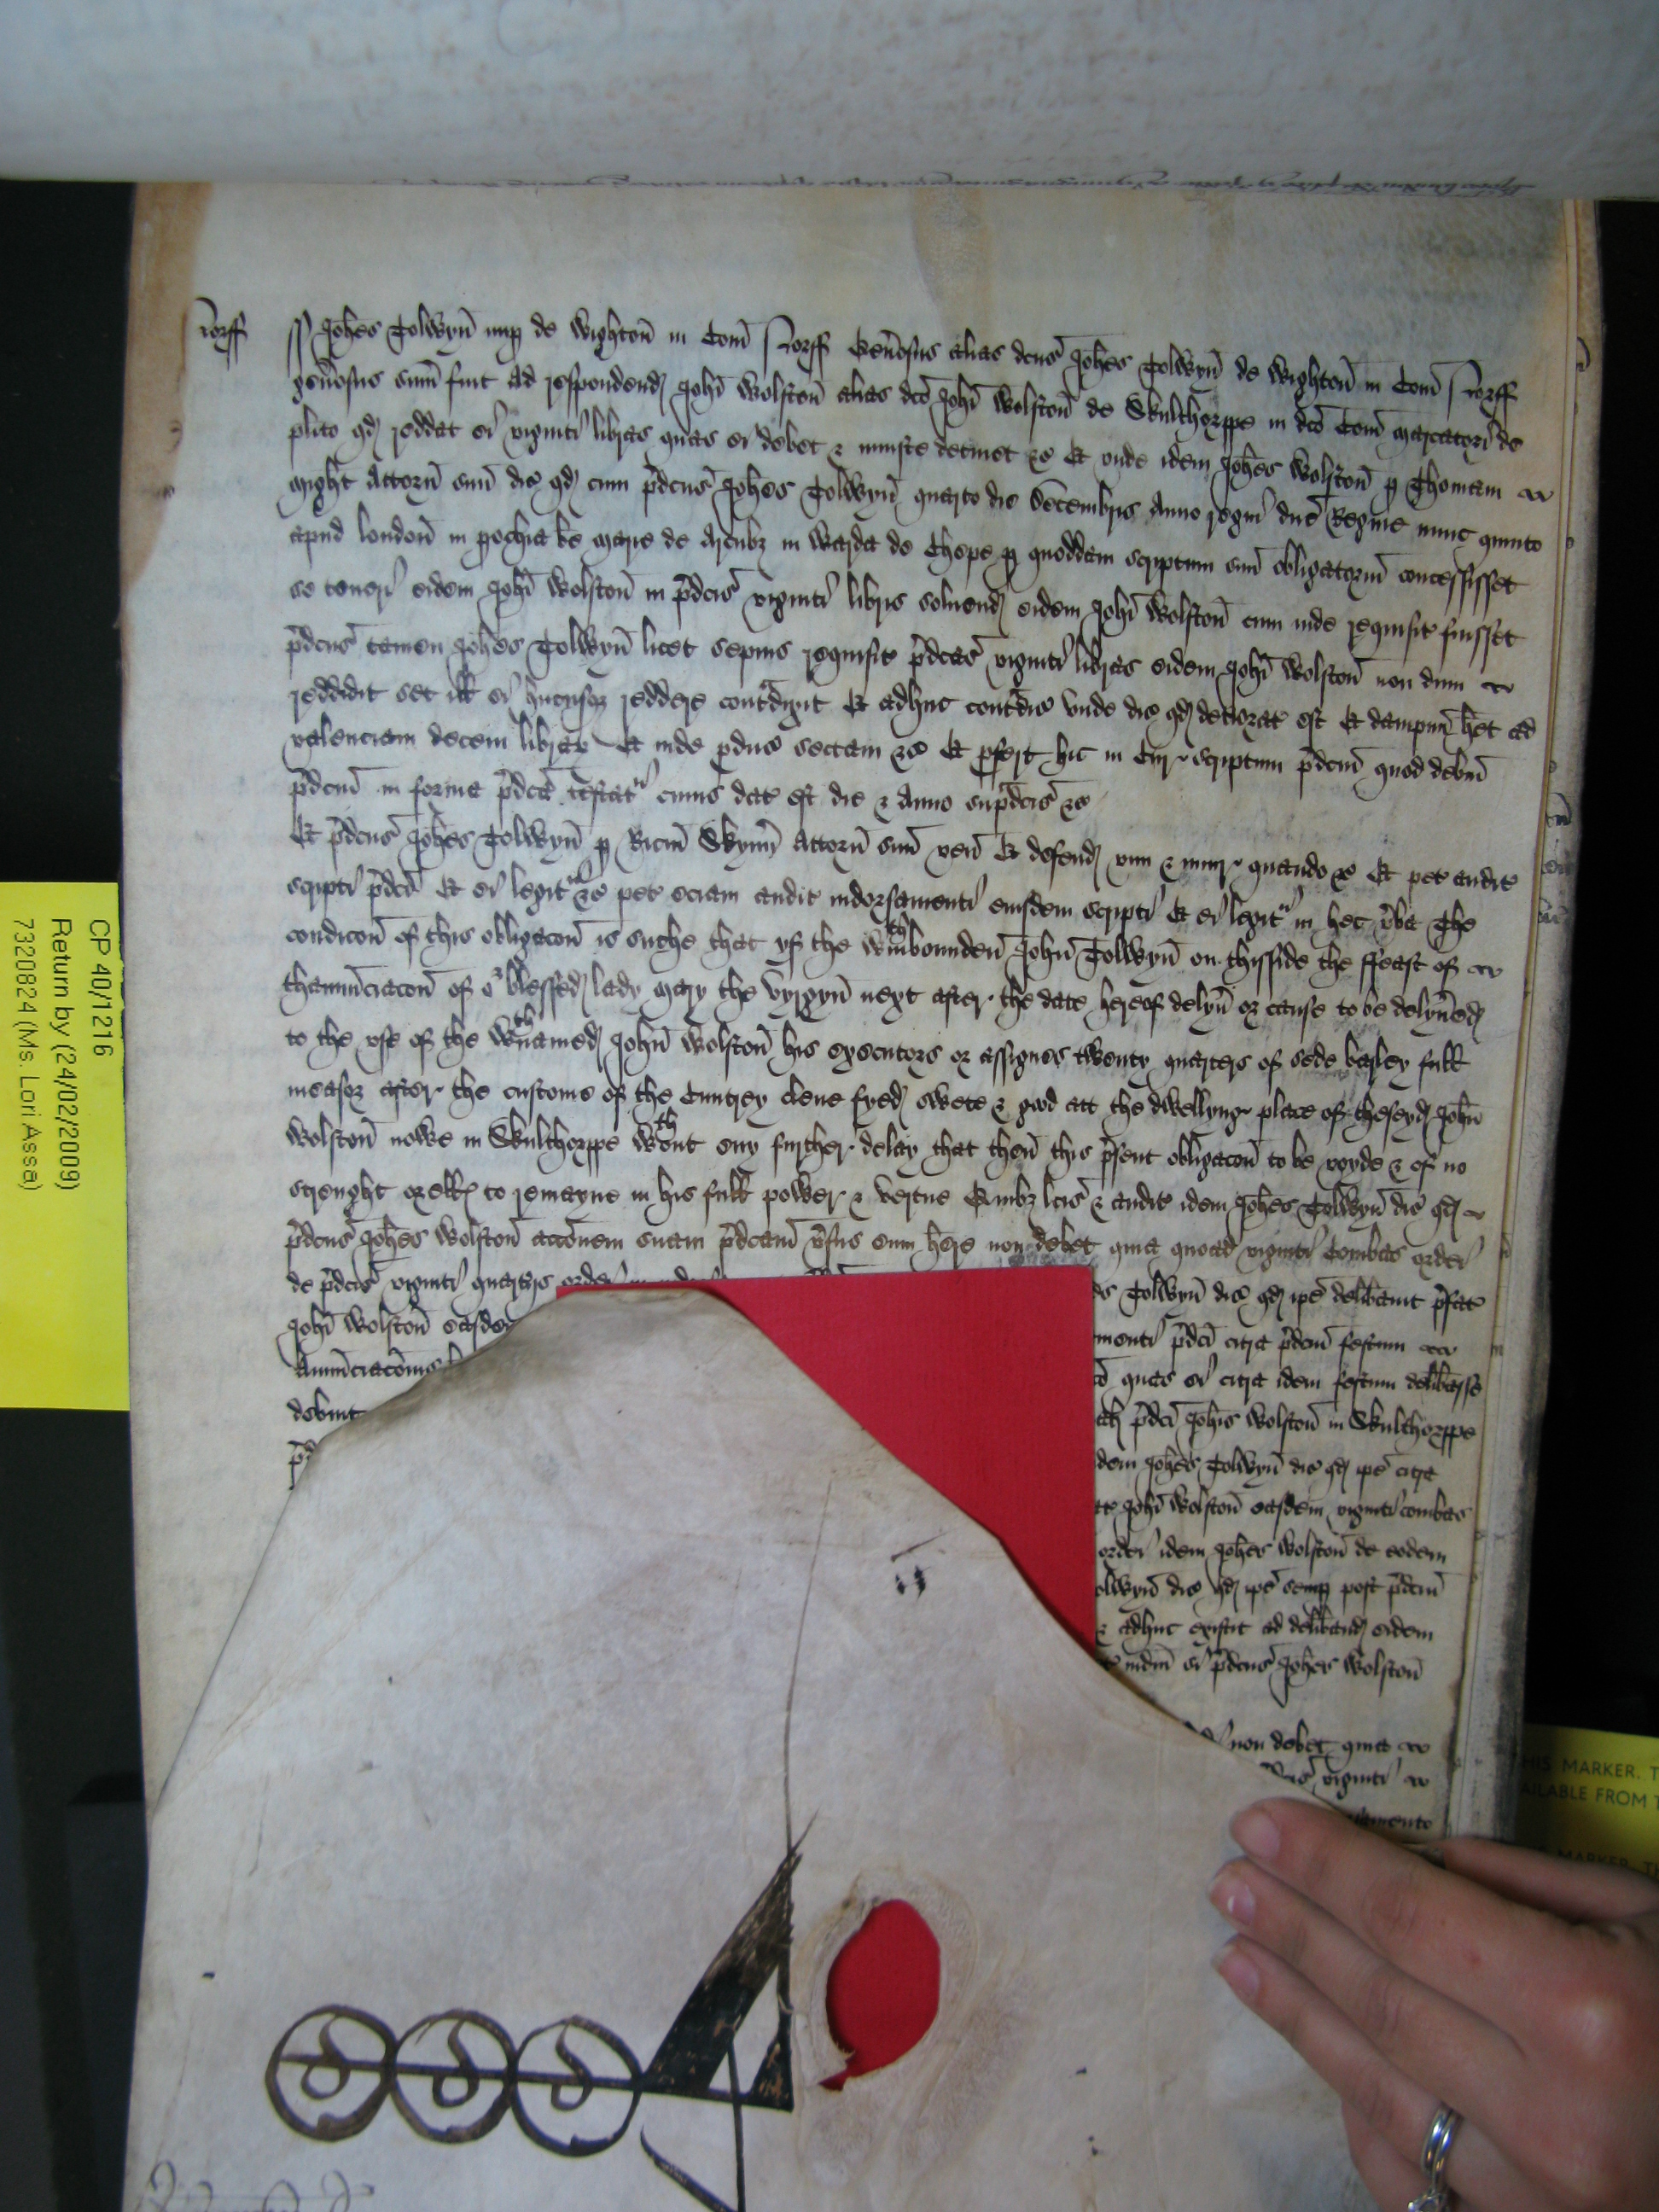 Norff
Joh̄es Tolwyn̄ nup de Wighton̄ in Com̄ Norff Gen̄osus alias dcūs Joh̄es Tolwyn̄ de Wighton̄ in Com̄ Norff
gen̄osus sum̄ fuit ad respondend Joh̄i Wolston̄ alias dcō Joh̄i Wolston̄ de Skulthorppe in dcō Com̄ marcatori de
plito qd reddat ei viginti libras quas ei debet & iniuste detinet &c Et unde idem Joh̄es Wolston̄ p Thomam
Myght Attorn̄ suū dic qd cum p̄dcus Joh̄es Tolwyn̄ quarto die Decembris Anno regni dn̄e Regine nunc quinto
apud london̄ in pochia be Marie de Arcubz in Warda de Chepe p quoddam scriptum suū obligatorium concessisset
se teneri eidem Joh̄i Wolston̄ in p̄dcis viginti libris soluend eidem Joh̄i Wolston̄ cum inde requisit fuisset
p̄dcus tamen Joh̄es Tolwyn̄ licet sepius requisit p̄dcas viginti libras eidem Joh̄i Wolston̄ non dum
reddidit set ill ei hucusqz reddere contadixit Et adhuc contadic unde dic qd deteriorat est Et dampnū h̄et ad
valenciam decem librar Et inde pduc sectam &c Et pfert hic in Cur scriptum p̄dcm̄ quod debm̄
p̄dcm̄ in forma p̄dca testatur cuius dat est die & Anno supadcis &c
Et p̄dcus Joh̄es Tolwyn̄ p Ricm̄ Skynn̄ Attorn̄ suū ven̄ Et defend vim & iniur quando &c Et pet audit
scripti p̄dci Et ei legitur &c pet eciam audit indorsamenti eiusdem scripti Et ei legitur in hec v̄ba The
condicon̄ of this obligacon̄ is suche that yf the wthinbounden̄ John̄ Tolwyn̄ on thysside the ffeast of
thannūciacon̄ of or blessed lady Mary the vyrgyn̄ next after the date hereof delyū or cause to be delyūed
to the use of the wthnamed John̄ Wolston̄ his executors or assignes twenty quarters of sede barley full
measor after the custome of the Cuntrey clene fyed swete & good att the dwellyng place of theseyd John̄
Wolston̄ nowe in Skulthorppe wthout eny further delay that then̄ this p̄sent obligacon̄ to be voyde & of no
strenght or ell to remayne in his full power & vertue Quibz lcis & audit idem Joh̄es Tolwyn̄ dic qd
p̄dcus Joh̄es Wolston̄ accōnem suam p̄dcam v̄sus eum h̄ere non debet quia quoad viginti Combas ordei
de p̄dcis viginti quartijs ordei Tolwyn̄ dic qd ip̄e delibauit p̄fat
Joh̄i Wolston̄ easdem menti p̄dci citra p̄dcm̄ festum
Annūciacōnis quas ei citra idem festum delibasse
debuit p̄dci Joh̄is Wolston̄ in Skulthorppe
idem Joh̄es Tolwyn̄ dic qd ip̄e citra
Joh̄i Wolston̄ easdem viginti combas
ordei idem Joh̄es Wolston̄ de eodem
olwyn̄ dic qd ip̄e semp post p̄dcm̄
& adhuc existit ad deliband eidem
si p̄dcus Joh̄es Wolston̄
non debet quia
viginti
CP 40/1216
Return by (24/02/2009)
7320824 (Ms. Lori Asse)
HIS MARKER. T
AILABLE FROM T
MARKER. TH